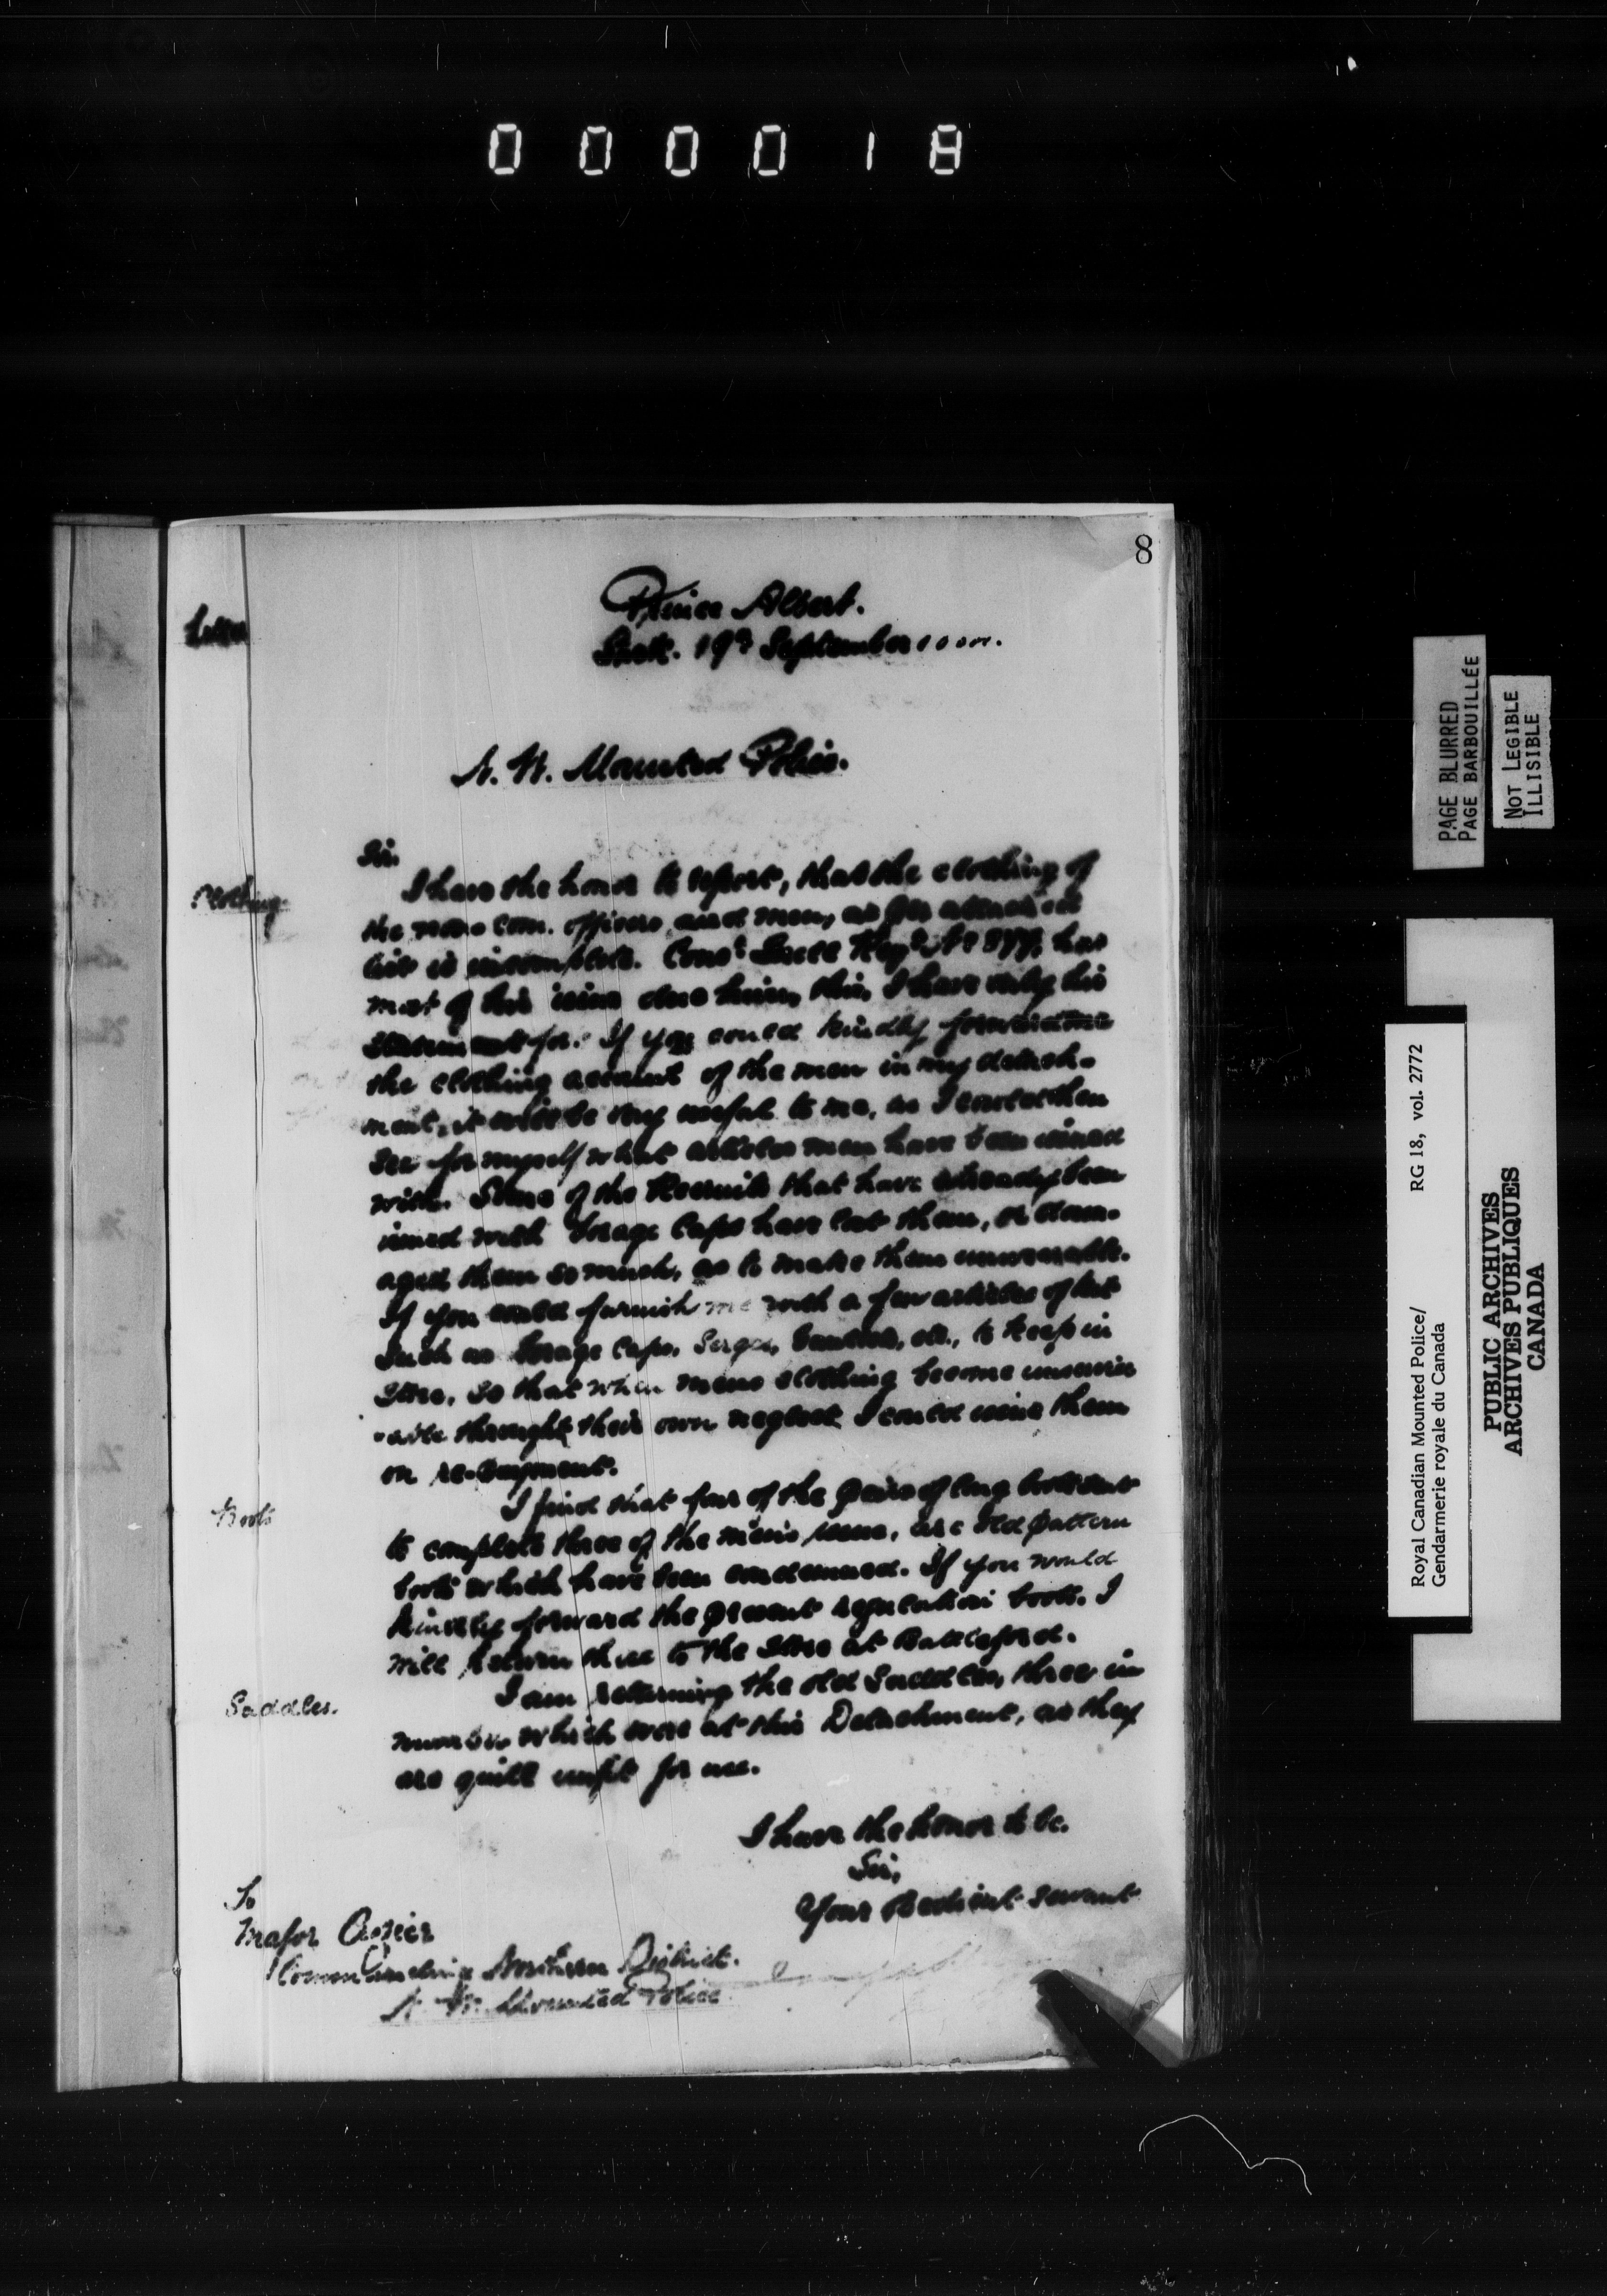 0 0 0 0 1 8
8
Prince Albert.
Sask. 19th September
N. W. Mounted Police.
Sir.
Clothing
I have the honor to report, that the clothing of
the non com. officers and men, as per attached
list is incomplete. Const Regt No 877, has
most of his issue due him, this, I have only his
statement for. If you could kindly forward me
the clothing account of the men in my detach-
ment, it will be very useful to me, as I could then
see for myself what articles men have been issued
with. Some of the Recruits that have already been
issued with Forage Caps have lost them, or dam-
aged them so much, as to make them unwearable.
If you would furnish me with a few articles of kit
such as Forage Caps, Serges, etc., to keep in
Store, so that when mens clothing become unservice
-able throught their own neglect I could issue them
on re-payment.
Boots
I find that four of the pairs of long boots sent
to complete three of the men's issue, are old pattern
boots which have been condemned. If you would
kindly forward the present regulation boots. I
will return these to the Store at Battleford.
Saddles.
I am returning the old Saddles, three in
number which were at this Detachment, as they
are quite unfit for use.
I have the honor to be.
Sir,
Your Obedient Servant
To
Major Crozier
Commanding Northern District.
N. W. Mounted Police
PAGE BLURRED
PAGE BARBOUILLÉE
NOT LEGIBLE
ILLISIBLE
Royal Canadian Mounted Police/ RG 18, vol. 2772
Gendarmerie royale du Canada
PUBLIC ARCHIVES
ARCHIVES PUBLIQUES
CANADA